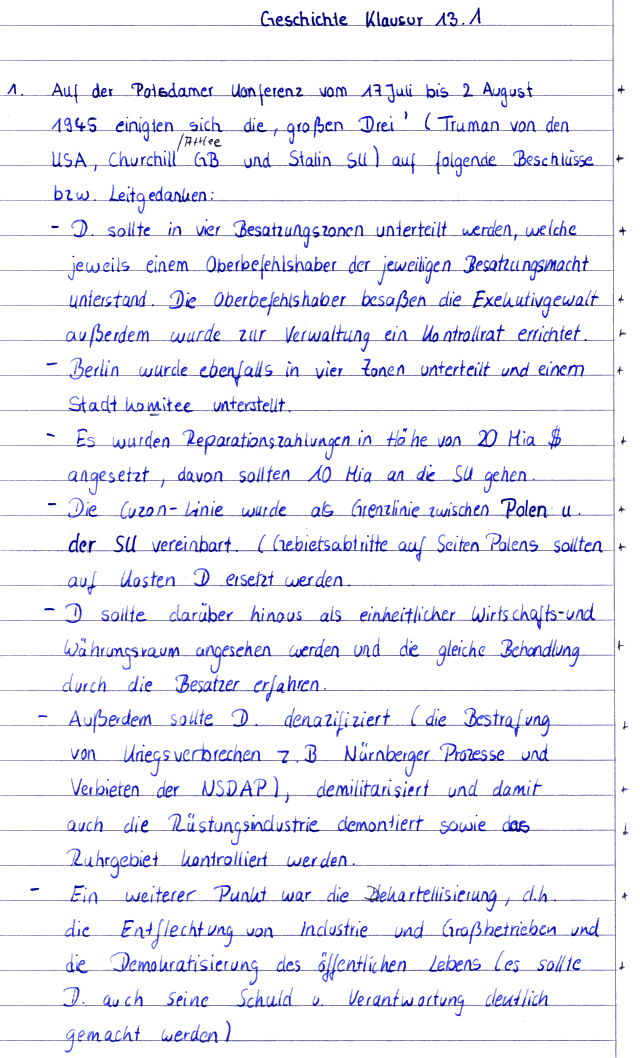 Geschichte Klausur 13.1
1. Auf der Potsdamer Konferenz vom 17 Juli bis 2 August +
1945 einigten sich die ‚großen Drei' (Truman von den
/Attlee
USA, Churchill GB und Stalin SU) auf folgende Beschlüsse +
bzw. Leitgedanken:
- D. sollte in vier Besatzungszonen unterteilt werden, welche +
jeweils einem Oberbefehlshaber der jeweiligen Besatzungsmacht
unterstand. Die Oberbefehlshaber besaßen die Exekutivgewalt +
außerdem wurde zur Verwaltung ein Kontrollrat errichtet. +
- Berlin wurde ebenfalls in vier Zonen unterteilt und einem +
Stadtkomitee unterstellt.
- Es wurden Reparationszahlungen in Höhe von 20 Mia $ +
angesetzt, davon sollten 10 Mia an die SU gehen.
- Die Cuzon-Linie wurde als Grenzlinie zwischen Polen u. +
der SU vereinbart. (Gebietsabtritte auf Seiten Polens sollten +
auf Kosten D ersetzt werden.
- D sollte darüber hinaus als einheitlicher Wirtschafts-und
Währungsraum angesehen werden und die gleiche Behandlung +
durch die Besatzer erfahren.
- Außerdem sollte D. denazifiziert (die Bestrafung +
von Kriegsverbrechen z.B Nürnberger Prozesse und
Verbieten der NSDAP), demilitarisiert und damit +
auch die Rüstungsindustrie demontiert sowie das +
Ruhrgebiet kontrolliert werden.
- Ein weiterer Punkt war die Dekartellisierung, d.h. +
die Entflechtung von Industrie und Großbetrieben und
die Demokratisierung des öffentlichen Lebens (es sollte +
D. auch seine Schuld u. Verantwortung deutlich
gemacht werden)